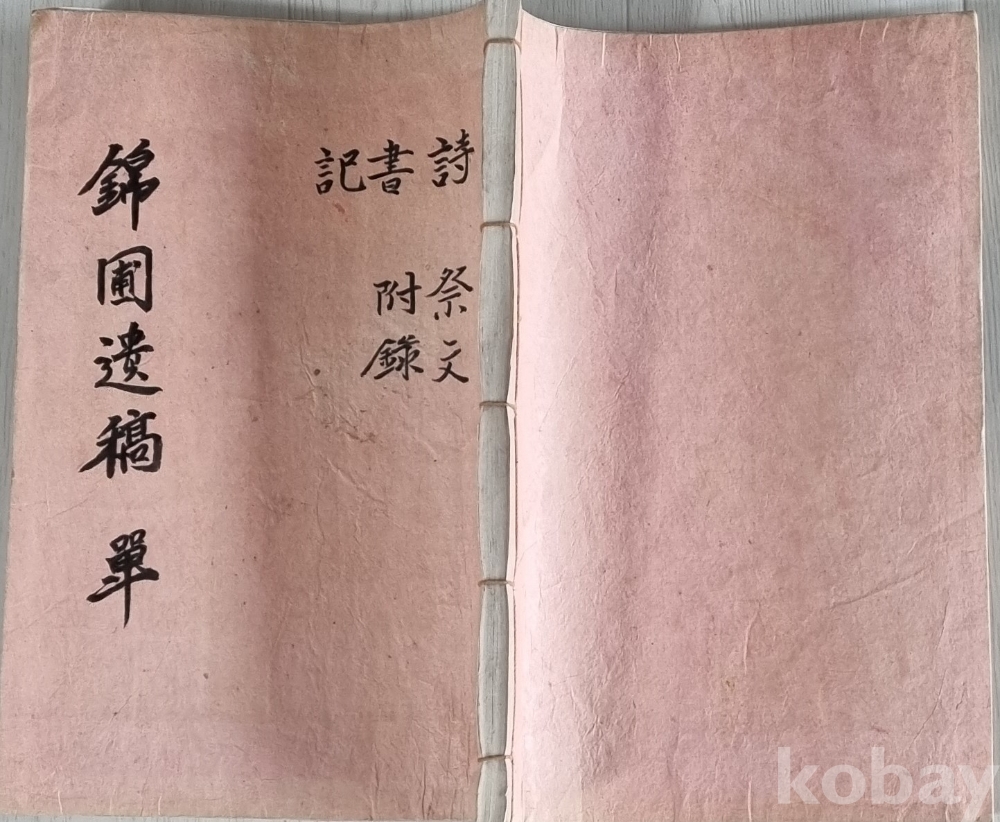 詩 祭文
書 附錄
記
錦圃遺稿 單
kobay